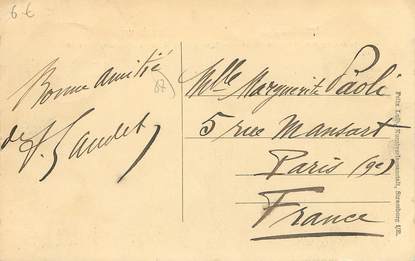 6 €
Bonne Amitié
de
67)
Mlle Marguerite Paoli
5 rue Mansart
Paris (9e)
France
Felix Kunstverlagsanstalt, Strassburg i/E.